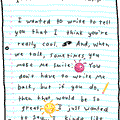 I wanted to write to tell
you that I think you're
really cool. And, when
you talk, sometimes, you
make me smile! You
don't have to write me
back, but if you do,
then that would be so
great! I just wanted
to say, I kinda like